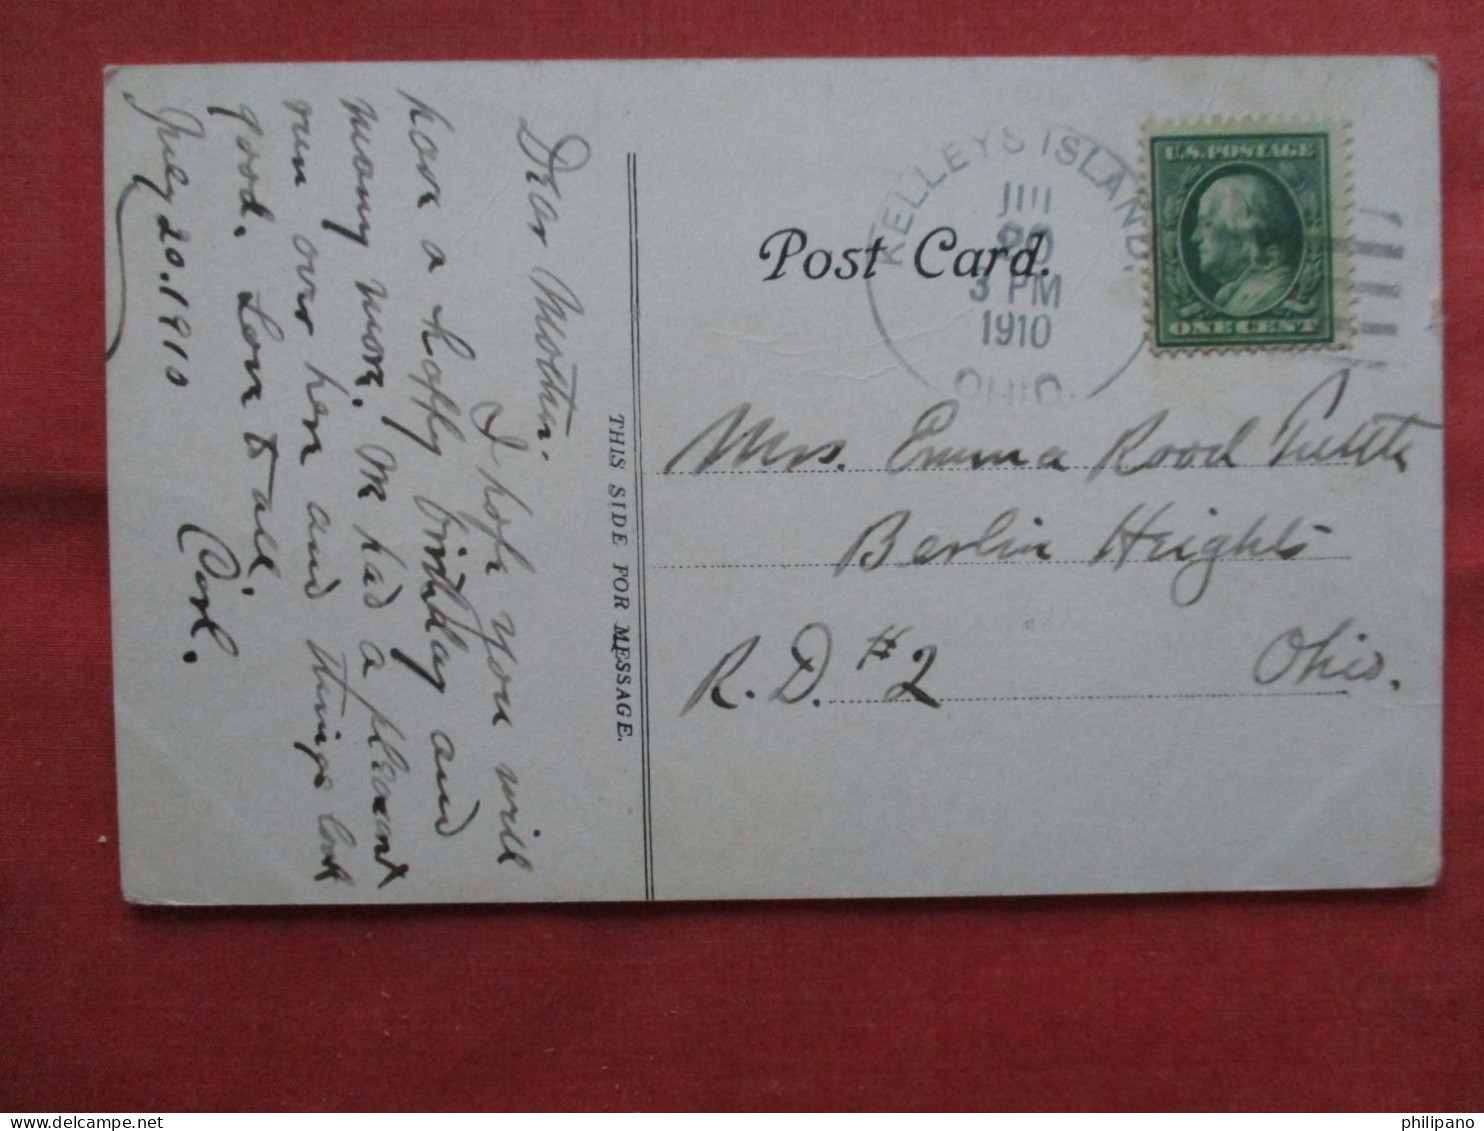 Dear Mother.
I hope you will
have a happy birthday and
many more. We had a pleasant
run over here and things look
good. Love to all.
Carl.
July 20. 1910
THIS SIDE FOR MESSAGE.
Post Card.
KELLEYS ISLAND,
JUL
20
3 PM
1910
OHIO.
U.S. POSTAGE
ONE CENT
Mrs. Emma Rood Tuttle
Berlin Heights
R.D. #2 Ohio.
philipano